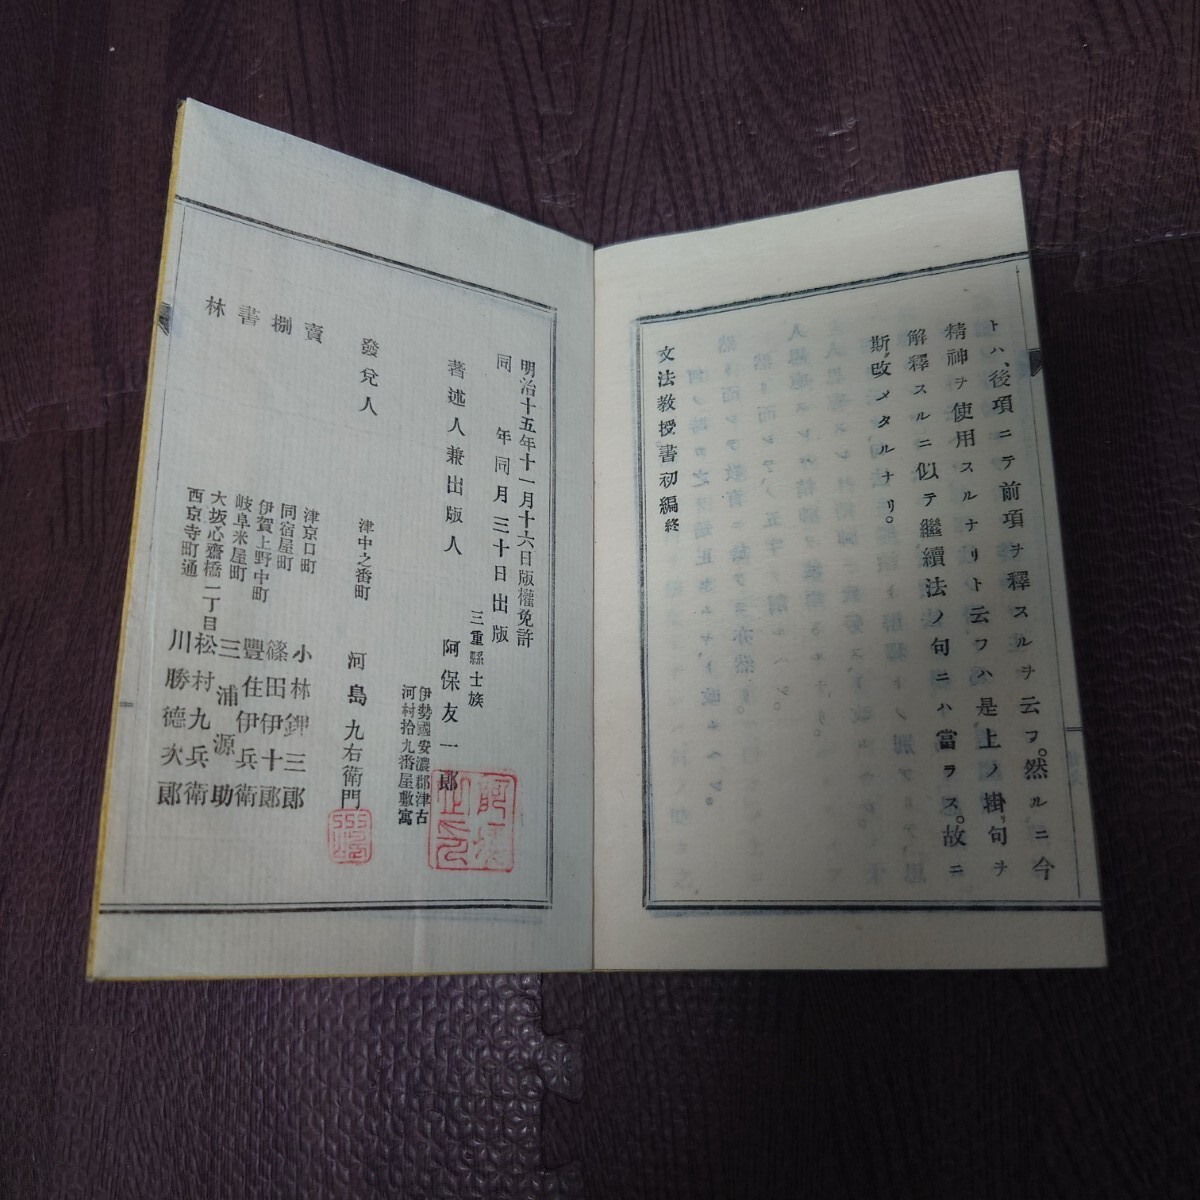 トハ、後項ニテ前項ヲ釋スルヲ云フ。然ルニ今
精神ヲ使用スルナリト云フハ是上ノ掛リ句ヲ
解釋スルニ似テ繼續法ノ句ニハ當ラス。故ニ
斯ク改メタルナリ。
文法教授書初編終
明治十五年十一月十六日版權免許
同年同月三十日出版
三重縣士族
著述人兼出版人 阿保友一郎
伊勢國安濃郡津古
河村拾九番屋敷寓
發兌人 津中之番町 河島九右衛門
賣捌書林
津京口町 小林鉀三郎
同宿屋町 篠田伊十郎
伊賀上野中町 豐住伊兵衛
岐阜米屋町 三浦源助
大坂心齋橋二丁目 松村九兵衛
西京寺町通 川勝德次郎